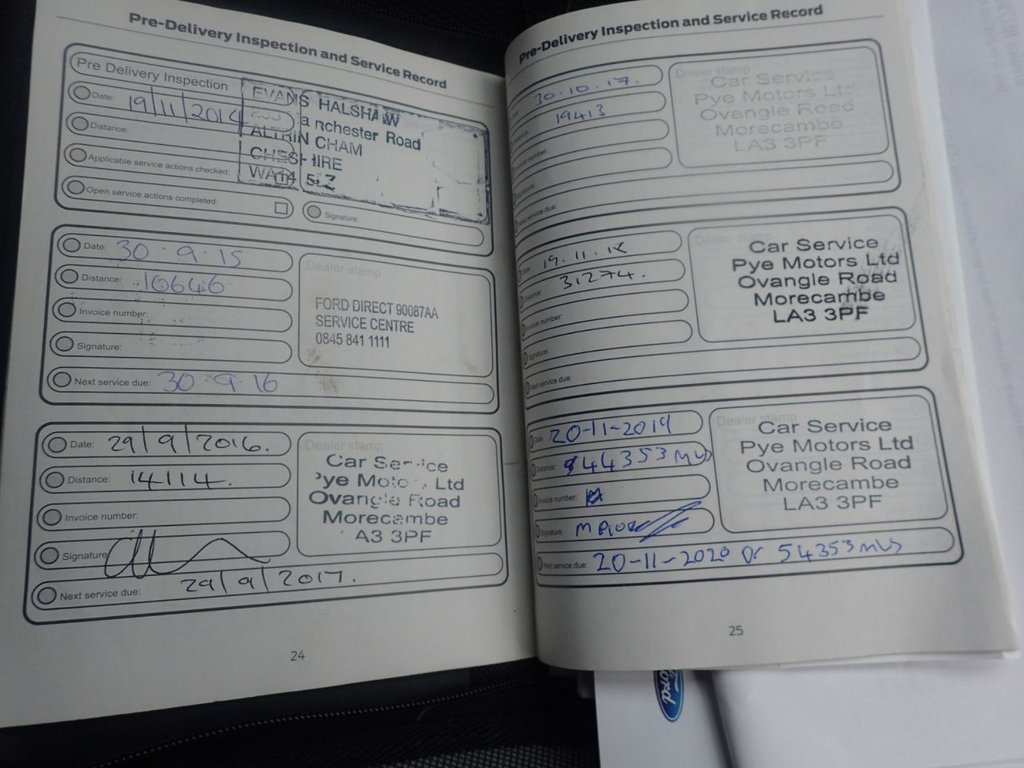 Pre-Delivery Inspection and Service Record
Pre Delivery Inspection
Date: 19/11/2014
Distance:
Applicable service actions checked:
Open service actions completed:
Signature:
EVANS HALSHAW
anchester Road
ALTRIN CHAM
CHESHIRE
WA14 5LZ
Date: 30·9·15
Distance: 10646
Invoice number:
Signature:
Next service due: 30·9·16
Dealer stamp
FORD DIRECT 90087AA
SERVICE CENTRE
0845 841 1111
Date: 29/9/2016.
Distance: 14114.
Invoice number:
Signature:
Next service due: 29/9/2017.
Dealer stamp
Car Service
Pye Motors Ltd
Ovangle Road
Morecambe
A3 3PF
24
Pre-Delivery Inspection and Service Record
30.10.17.
19413
Dealer stamp
Car Service
Pye Motors Ltd
Ovangle Road
Morecambe
LA3 3PF
19.11.18
31274.
Invoice number:
Signature:
Next service due:
Car Service
Pye Motors Ltd
Ovangle Road
Morecambe
LA3 3PF
Date: 20-11-2019
Distance: 44353 MLS
Invoice number:
Signature:
Next service due: 20-11-2020 or 54353 MLS
Dealer stamp
Car Service
Pye Motors Ltd
Ovangle Road
Morecambe
LA3 3PF
25
Ford